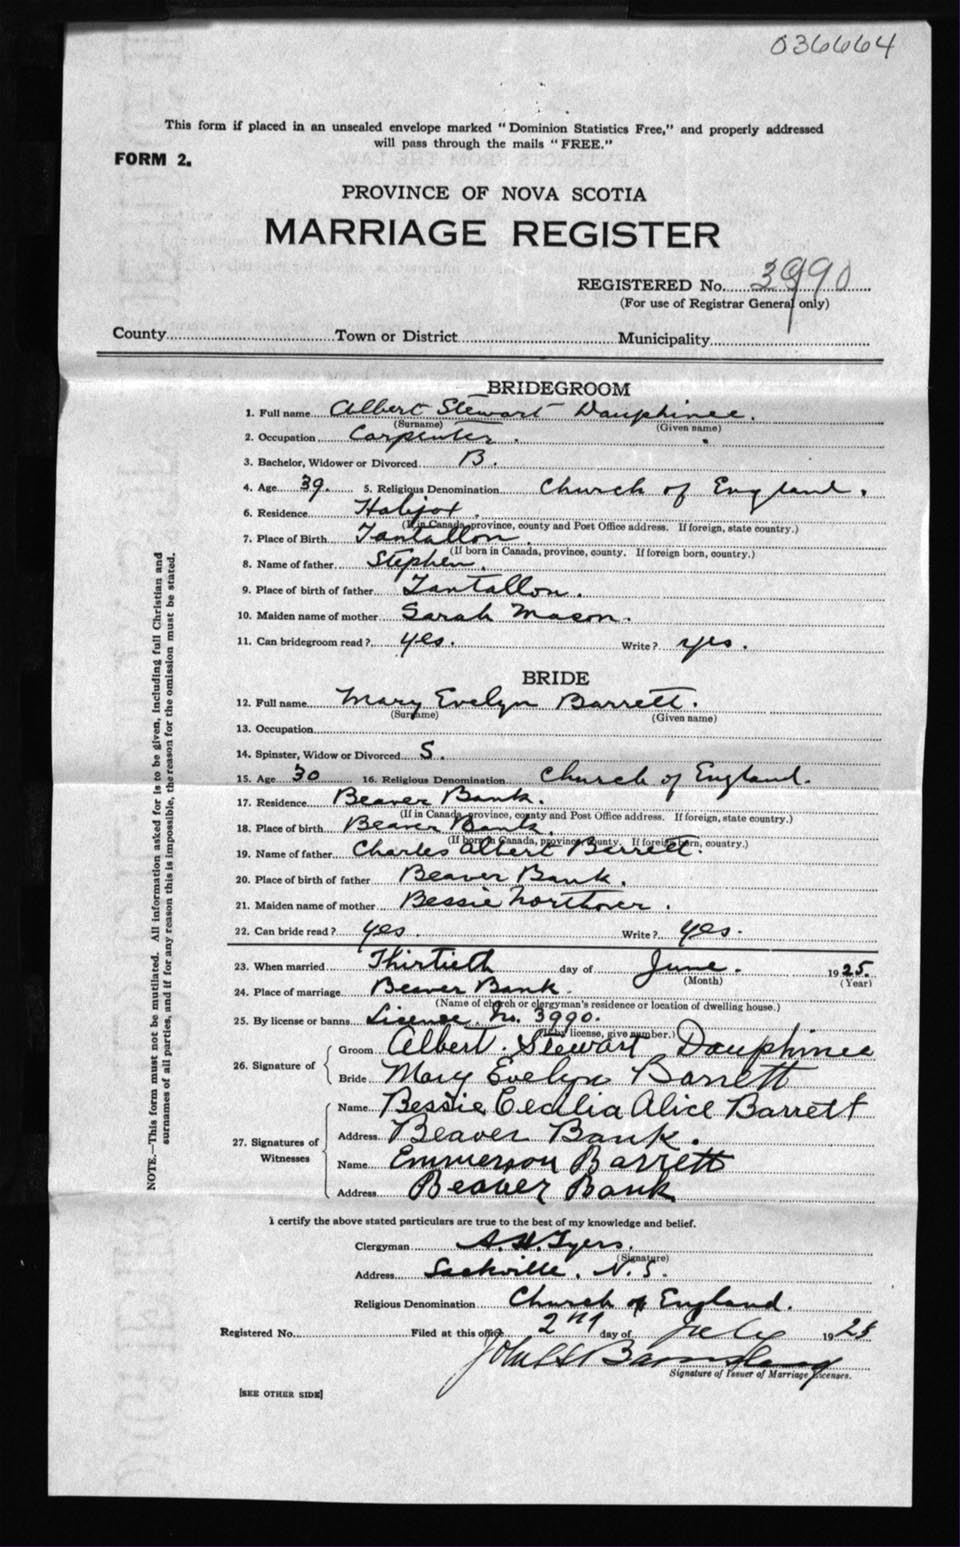 036664
This form if placed in an unsealed envelope marked "Dominion Statistics Free," and properly addressed
will pass through the mails "FREE."
FORM 2.
PROVINCE OF NOVA SCOTIA
MARRIAGE REGISTER
REGISTERED No. 3990
(For use of Registrar General only)
County Town or District Municipality
BRIDEGROOM
1. Full name Albert Stewart Dauphinee.
(Surname) (Given name)
2. Occupation Carpenter.
3. Bachelor, Widower or Divorced B.
4. Age 39. 5. Religious Denomination Church of England.
6. Residence Halifax.
(If in Canada, province, county and Post Office address. If foreign, state country.)
7. Place of Birth Tantallon.
(If born in Canada, province, county. If foreign born, country.)
8. Name of father Stephen.
9. Place of birth of father Tantallon.
10. Maiden name of mother Sarah Mason.
11. Can bridegroom read? yes. Write? yes.
BRIDE
12. Full name Mary Evelyn Barrett.
(Surname) (Given name)
13. Occupation
14. Spinster, Widow or Divorced S.
15. Age 30 16. Religious Denomination Church of England.
17. Residence Beaver Bank.
(If in Canada, province, county and Post Office address. If foreign, state country.)
18. Place of birth Beaver Bank.
(If born in Canada, province, county. If foreign born, country.)
19. Name of father Charles Albert Barrett.
20. Place of birth of father Beaver Bank.
21. Maiden name of mother Bessie Northover.
22. Can bride read? yes. Write? yes.
23. When married Thirtieth day of June. 1925.
(Month) (Year)
24. Place of marriage Beaver Bank.
(Name of church or clergyman's residence or location of dwelling house.)
25. By license or banns License No. 3990.
(If by license, give number.)
26. Signature of
Groom Albert. Stewart Dauphinee
Bride Mary Evelyn Barrett
27. Signatures of Witnesses
Name Bessie Cecilia Alice Barrett
Address Beaver Bank.
Name Emmerson Barrett
Address Beaver Bank
I certify the above stated particulars are true to the best of my knowledge and belief.
Clergyman A.W. Tyers.
(Signature)
Address Sackville, N.S.
Religious Denomination Church of England.
Registered No. Filed at this office 2nd day of July 1925
Signature of Issuer of Marriage Licenses.
[SEE OTHER SIDE]
NOTE.—This form must not be mutilated. All information asked for is to be given, including full Christian and
surnames of all parties, and if for any reason this is impossible, the reason for the omission must be stated.